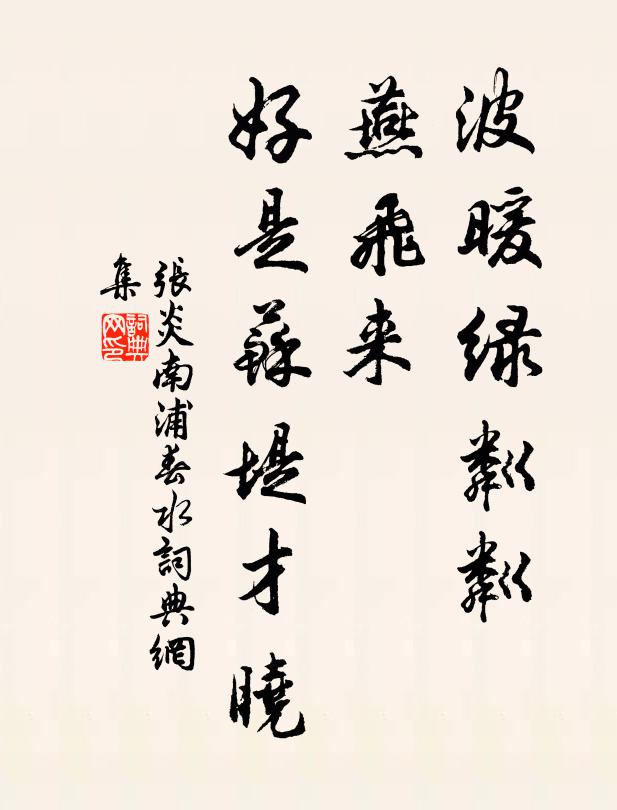 波暖绿粼粼
燕飛来
好是蘇堤才曉
張炎南浦春水詞典網
集
詞典
网印